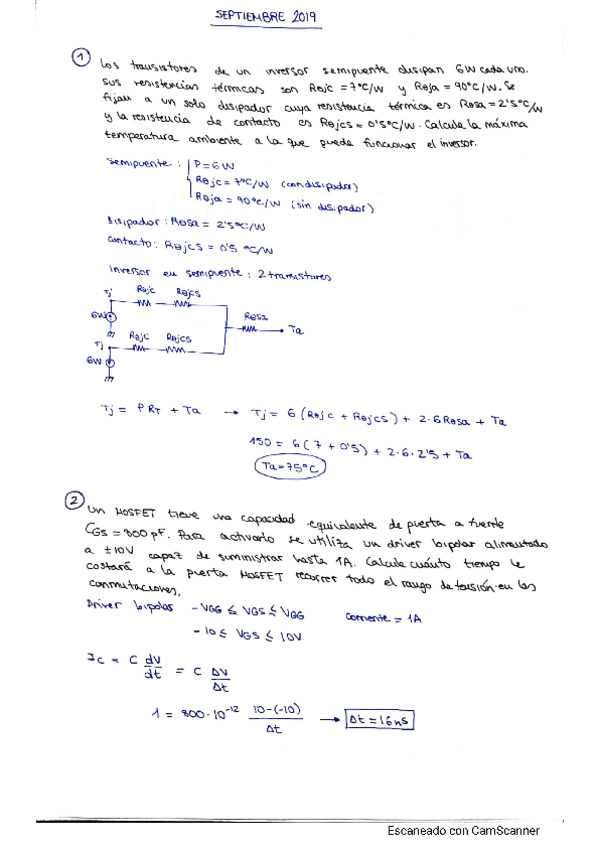 SEPTIEMBRE 2019
① Los transistores de un inversor semipuente disipan 6W cada uno.
sus resistencias térmicas son Rθjc = 7°C/W y Rθja = 90°C/W. Se
fijan a un solo disipador cuya resistencia térmica es Rθsa = 2'5°C/W
y la resistencia de contacto es Rθjcs = 0'5°C/W. Calcule la máxima
temperatura ambiente a la que puede funcionar el inversor.
Semipuente : P = 6W
Rθjc = 7°C/W (con disipador)
Rθja = 90°C/W (sin disipador)
Disipador: Rθsa = 2'5°C/W
Contacto: Rθjcs = 0'5 °C/W
Inversor en semipuente : 2 transistores
Tj Rθjc Rθjcs
6W Rθsa Ta
Tj Rθjc Rθjcs
6W
Tj = P RT + Ta → Tj = 6 (Rθjc + Rθjcs) + 2·6Rθsa + Ta
150 = 6 (7 + 0'5) + 2·6·2'5 + Ta
Ta = 75°C
② Un MOSFET tiene una capacidad equivalente de puerta a fuente
CGS = 800 pF. Para activarlo se utiliza un driver bipolar alimentado
a ±10V capaz de suministrar hasta 1A. Calcule cuánto tiempo le
costará a la puerta MOSFET recorrer todo el rango de tensión en las
conmutaciones.
Driver bipolar -VGG ≤ VGS ≤ VGG Corriente = 1A
-10 ≤ VGS ≤ 10V
Ic = C dV/dt = C ΔV/Δt
1 = 800·10⁻¹² 10-(-10)/Δt → Δt = 16ns
Escaneado con CamScanner